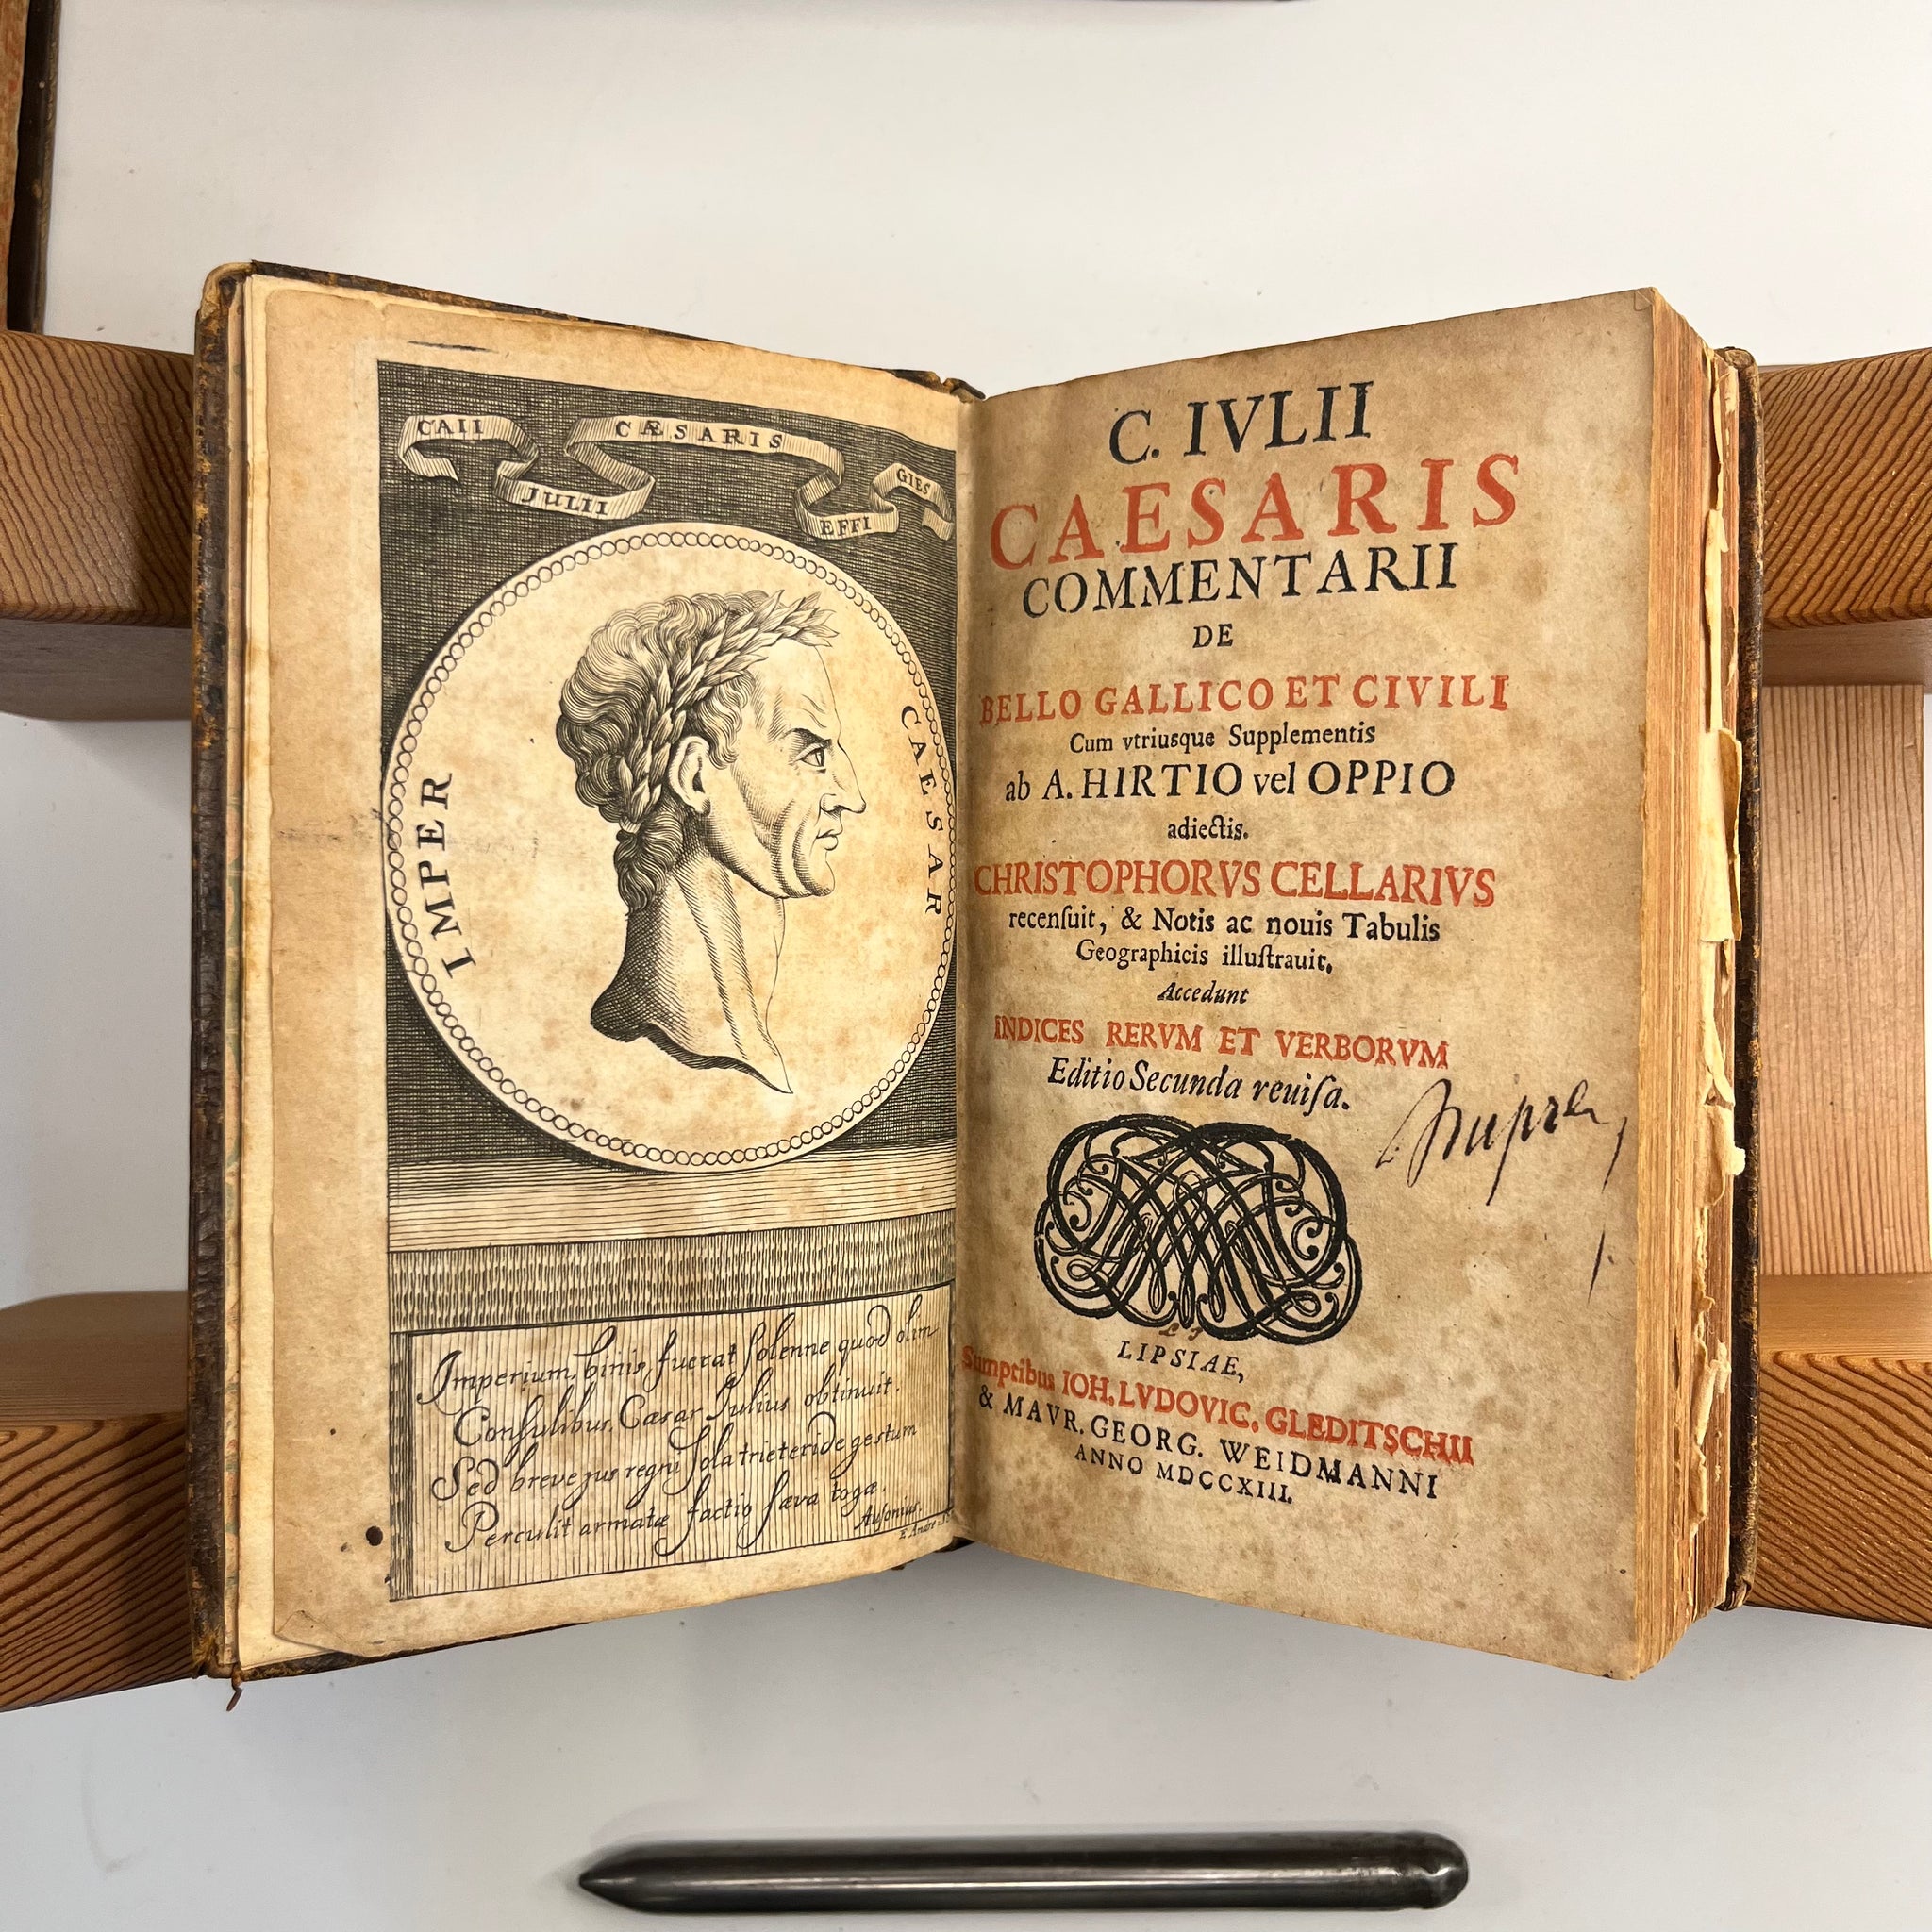 CAII
JULII
CÆSARIS
EFFI
GIES
IMPER
CAESAR
Imperium, binis fuerat solenne quod olim
Consulibus, Cæsar Julius obtinuit.
Sed breve jus regni sola trieteride gestum
Perculit armatæ factio sæva togæ.
Ausonius.
C. IVLII
CAESARIS
COMMENTARII
DE
BELLO GALLICO ET CIVILI
Cum vtriusque Supplementis
ab A. HIRTIO vel OPPIO
adiectis.
CHRISTOPHORVS CELLARIVS
recenſuit, & Notis ac nouis Tabulis
Geographicis illuſtrauit.
Accedunt
INDICES RERVM ET VERBORVM
Editio Secunda reuiſa.
LIPSIAE,
Sumptibus IOH. LVDOVIC. GLEDITSCHII
& MAVR. GEORG. WEIDMANNI
ANNO MDCCXIII.